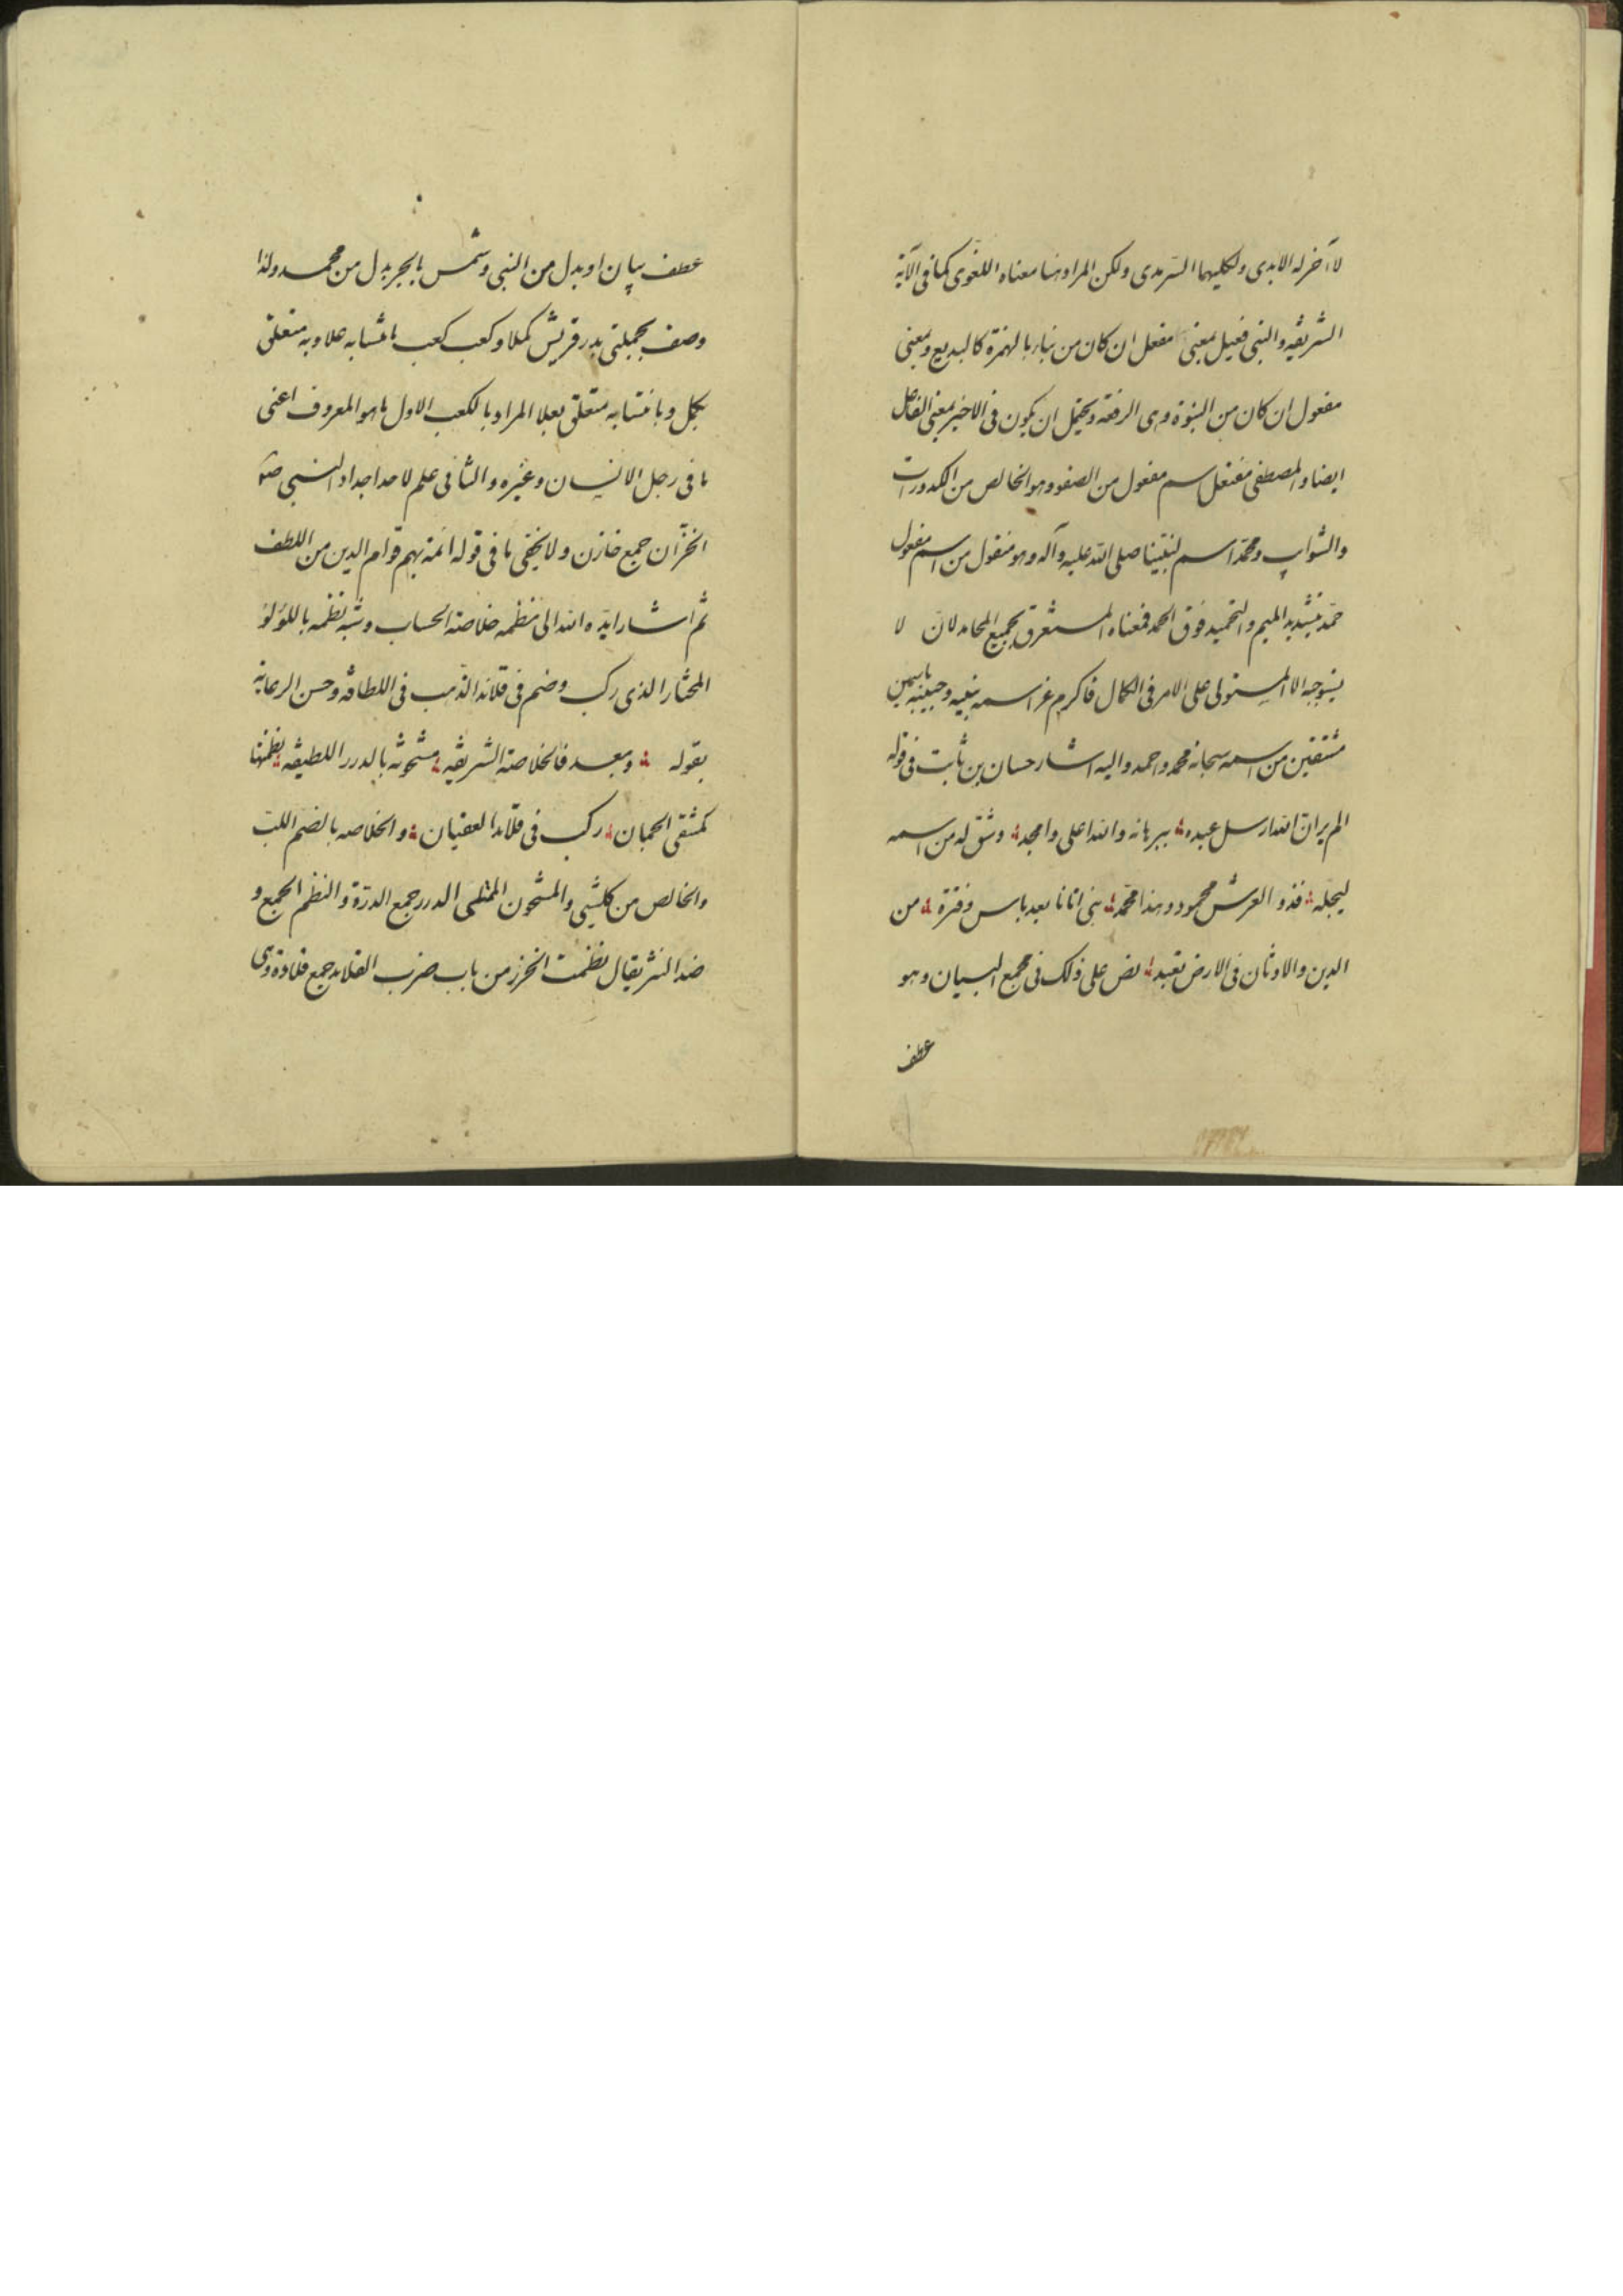 لا آخر له الابدى ولكليهما السّرمدى ولكن المراد هنا معناه اللغوى كما فى الآية
الشريفه والنبى فعيل بمعنى مفعل ان كان من نبأ بالهمزة كالبديع وبمعنى
مفعول ان كان من النبوة وهى الرفعة ويحتمل ان يكون فى الاخير بمعنى الفاعل
ايضا والمصطفى مفتعل اسم مفعول من الصفو وهو الخالص من الكدورات
والشوايب ومحمّد اسم لنبيّنا صلى الله عليه وآله وهو منقول من اسم مفعول
حمّد بتشديد الميم والتحميد فوق الحمد فمعناه المستغرق بجميع المحامد لانّ لا
يستوجبه الا المستولى على الامر فى الكمال فاكرم عز اسمه نبيه وحبيبه باسمين
مشتقين من اسمه سبحانه محمد واحمد واليه اشار حسان بن ثابت فى قوله
الم يران الله ارسل عبده ببرهانه والله اعلى وامجد وشق له من اسمه
ليجله فذو العرش محمود وهذا محمّد نبى اتانا بعد ياس وفترة من
الدين والاوثان فى الارض تعبد نص على ذلك فى مجمع البيان وهو
عطف
عطف بيان او بدل من النبى وشمس بالجر بدل من محمد ولذا
وصف بجملتى بدر قريش كملا وكعب كعب بانتسابه علا وبه متعلق
بكمل وبانتسابه متعلق بعلا المراد بالكعب الاول ما هو المعروف اعنى
ما فى رجل الانسان وغيره والثانى علم لاحد اجداد النبى ص
الخزّان جمع خازن ولا يخفى ما فى قوله ائمة بهم قوام الدين من اللطف
ثم اشار ايّده الله الى نظمه خلاصة الحساب وشبه نظمه باللؤلؤ
المختار الذى ركب وضم فى قلائد الذهب فى اللطافة وحسن الرعاية
بقوله وبعد فالخلاصة الشريفه مشحونه بالدرر اللطيفه نظمتها
كمنتقى الجمان ركب فى قلائد العقيان والخلاصه بالضم اللبّ
والخالص من كلشيى والمشحون الممتلى الدرر جمع الدرّة والنظم الجمع و
ضد النثر يقال نظمت الخرز من باب ضرب القلايد جمع قلادة وهى